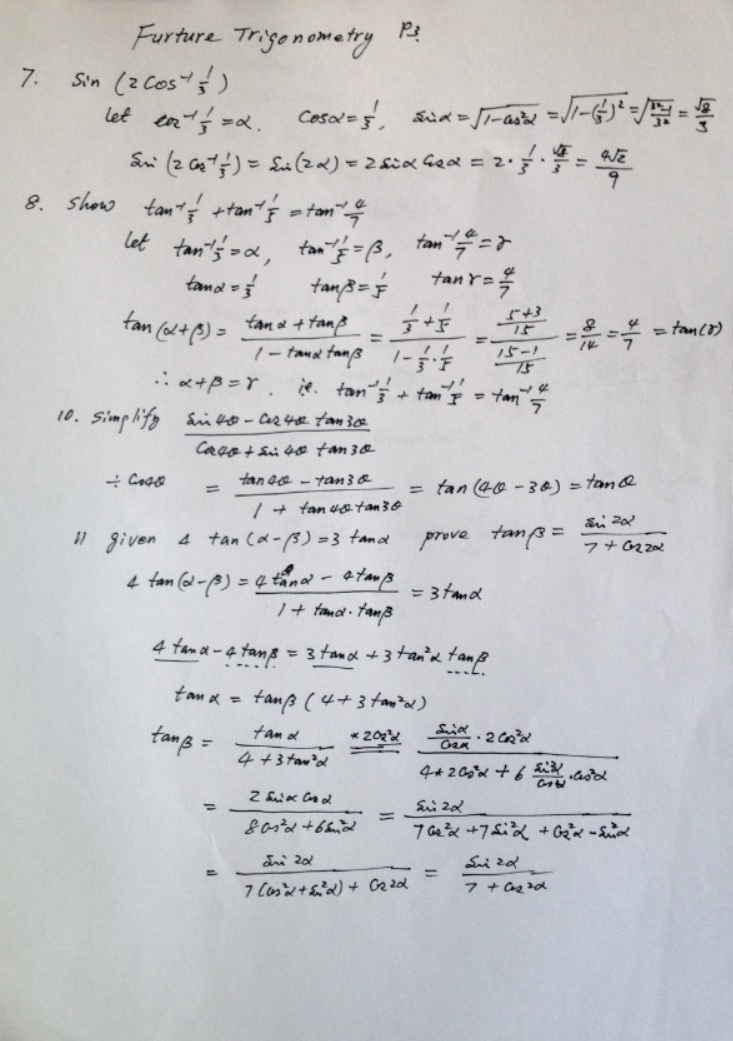 Furture Trigonometry P3.
7. Sin (2 Cos⁻¹ 1/3)
let cos⁻¹ 1/3 = α. Cosα = 1/3, sinα = √(1-cos²α) = √(1-(1/3)²) = √((3²-1)/3²) = √8/3
Sin (2 Cos⁻¹ 1/3) = Sin(2α) = 2 sinα Cosα = 2 · 1/3 · √8/3 = 4√2/9
8. Show tan⁻¹ 1/3 + tan⁻¹ 1/5 = tan⁻¹ 4/7
let tan⁻¹ 1/3 = α, tan⁻¹ 1/5 = β, tan⁻¹ 4/7 = γ
tanα = 1/3 tanβ = 1/5 tan γ = 4/7
tan(α+β) = (tanα + tanβ)/(1 - tanα tanβ) = (1/3 + 1/5)/(1 - 1/3 · 1/5) = ((5+3)/15)/((15-1)/15) = 8/14 = 4/7 = tan(γ)
∴ α+β = γ. ie. tan⁻¹ 1/3 + tan⁻¹ 1/5 = tan⁻¹ 4/7
10. Simplify (Sin 4θ - Cos 4θ tan 3θ)/(Cos 4θ + Sin 4θ tan 3θ)
÷ Cos4θ = (tan 4θ - tan 3θ)/(1 + tan 4θ tan 3θ) = tan (4θ - 3θ) = tan θ
11 given 4 tan (α-β) = 3 tanα prove tanβ = sin 2α/(7 + cos 2α)
4 tan(α-β) = (4 tanα - 4 tanβ)/(1 + tanα · tanβ) = 3 tanα
4 tanα - 4 tanβ = 3 tanα + 3 tan²α tanβ
tan α = tanβ (4 + 3 tan²α)
tanβ = tan α/(4 + 3 tan²α) =×2cos²α= (sinα/cosα · 2 cos²α)/(4 * 2 cos²α + 6 sin²α/cos²α · cos²α)
= 2 sinα cosα/(8 cos²α + 6 sin²α) = Sin 2α/(7 cos²α + 7 sin²α + cos²α - sin²α)
= Sin 2α/(7 (cos²α + sin²α) + cos 2α) = Sin 2α/(7 + cos 2α)